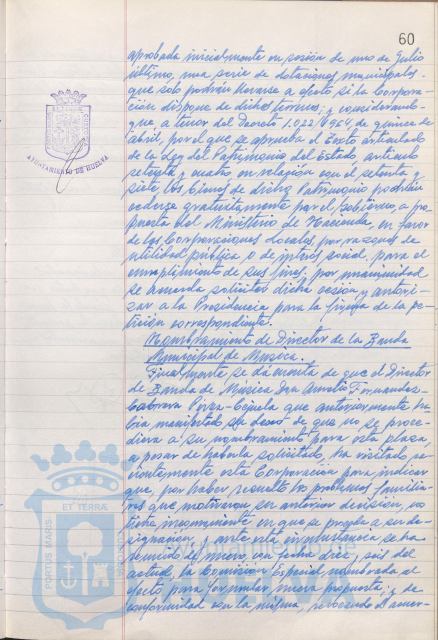 60
aprobada inicialmente en sesión de uno de Julio
último, una serie de dotaciones municipales
que sólo podrán llevarse a efecto si la Corpora-
ción dispone de dichos terrenos; y considerando
que, a tenor del Decreto 1.022/1964, de quince de
abril, por el que se aprueba el Texto articulado
de la Ley del Patrimonio del Estado, artículo
setenta y cuatro en relación con el setenta y
siete, los bienes de dicho Patrimonio podrán
cederse gratuitamente por el Gobierno, a pro-
puesta del Ministerio de Hacienda, en favor
de las Corporaciones Locales por razones de
utilidad pública o de interés social, para el
cumplimiento de sus fines, por unanimidad
se acuerda solicitar dicha cesión y autori-
zar a la Presidencia para la firma de la pe-
tición correspondiente.
Nombramiento de Director de la Banda
Municipal de Musica.
Finalmente se dá cuenta de que el Director
de Banda de Música Don Aurelio Fernandez-
Cabrera Pérez-Cejuela que anteriormente ha-
bia manifestado su deseo de que no se proce-
diera a su nombramiento para esta plaza,
a pesar de haberla solicitado, ha visitado re-
cientemente esta Corporación para indicar
que, por haber resuelto los problemas familia-
res que motivaron su anterior decisión, no
tiene inconveniente en que se proceda a su de-
signación, y ante esta circunstancia se ha
reunido de nuevo, con fecha diez y seis del
actual, la Comisión Especial nombrada al
efecto, para formular nueva propuesta; y de
conformidad con la misma, revocando el acuer-
AYUNTAMIENTO DE HUELVA
PORTUS MARIS
ET TERRÆ